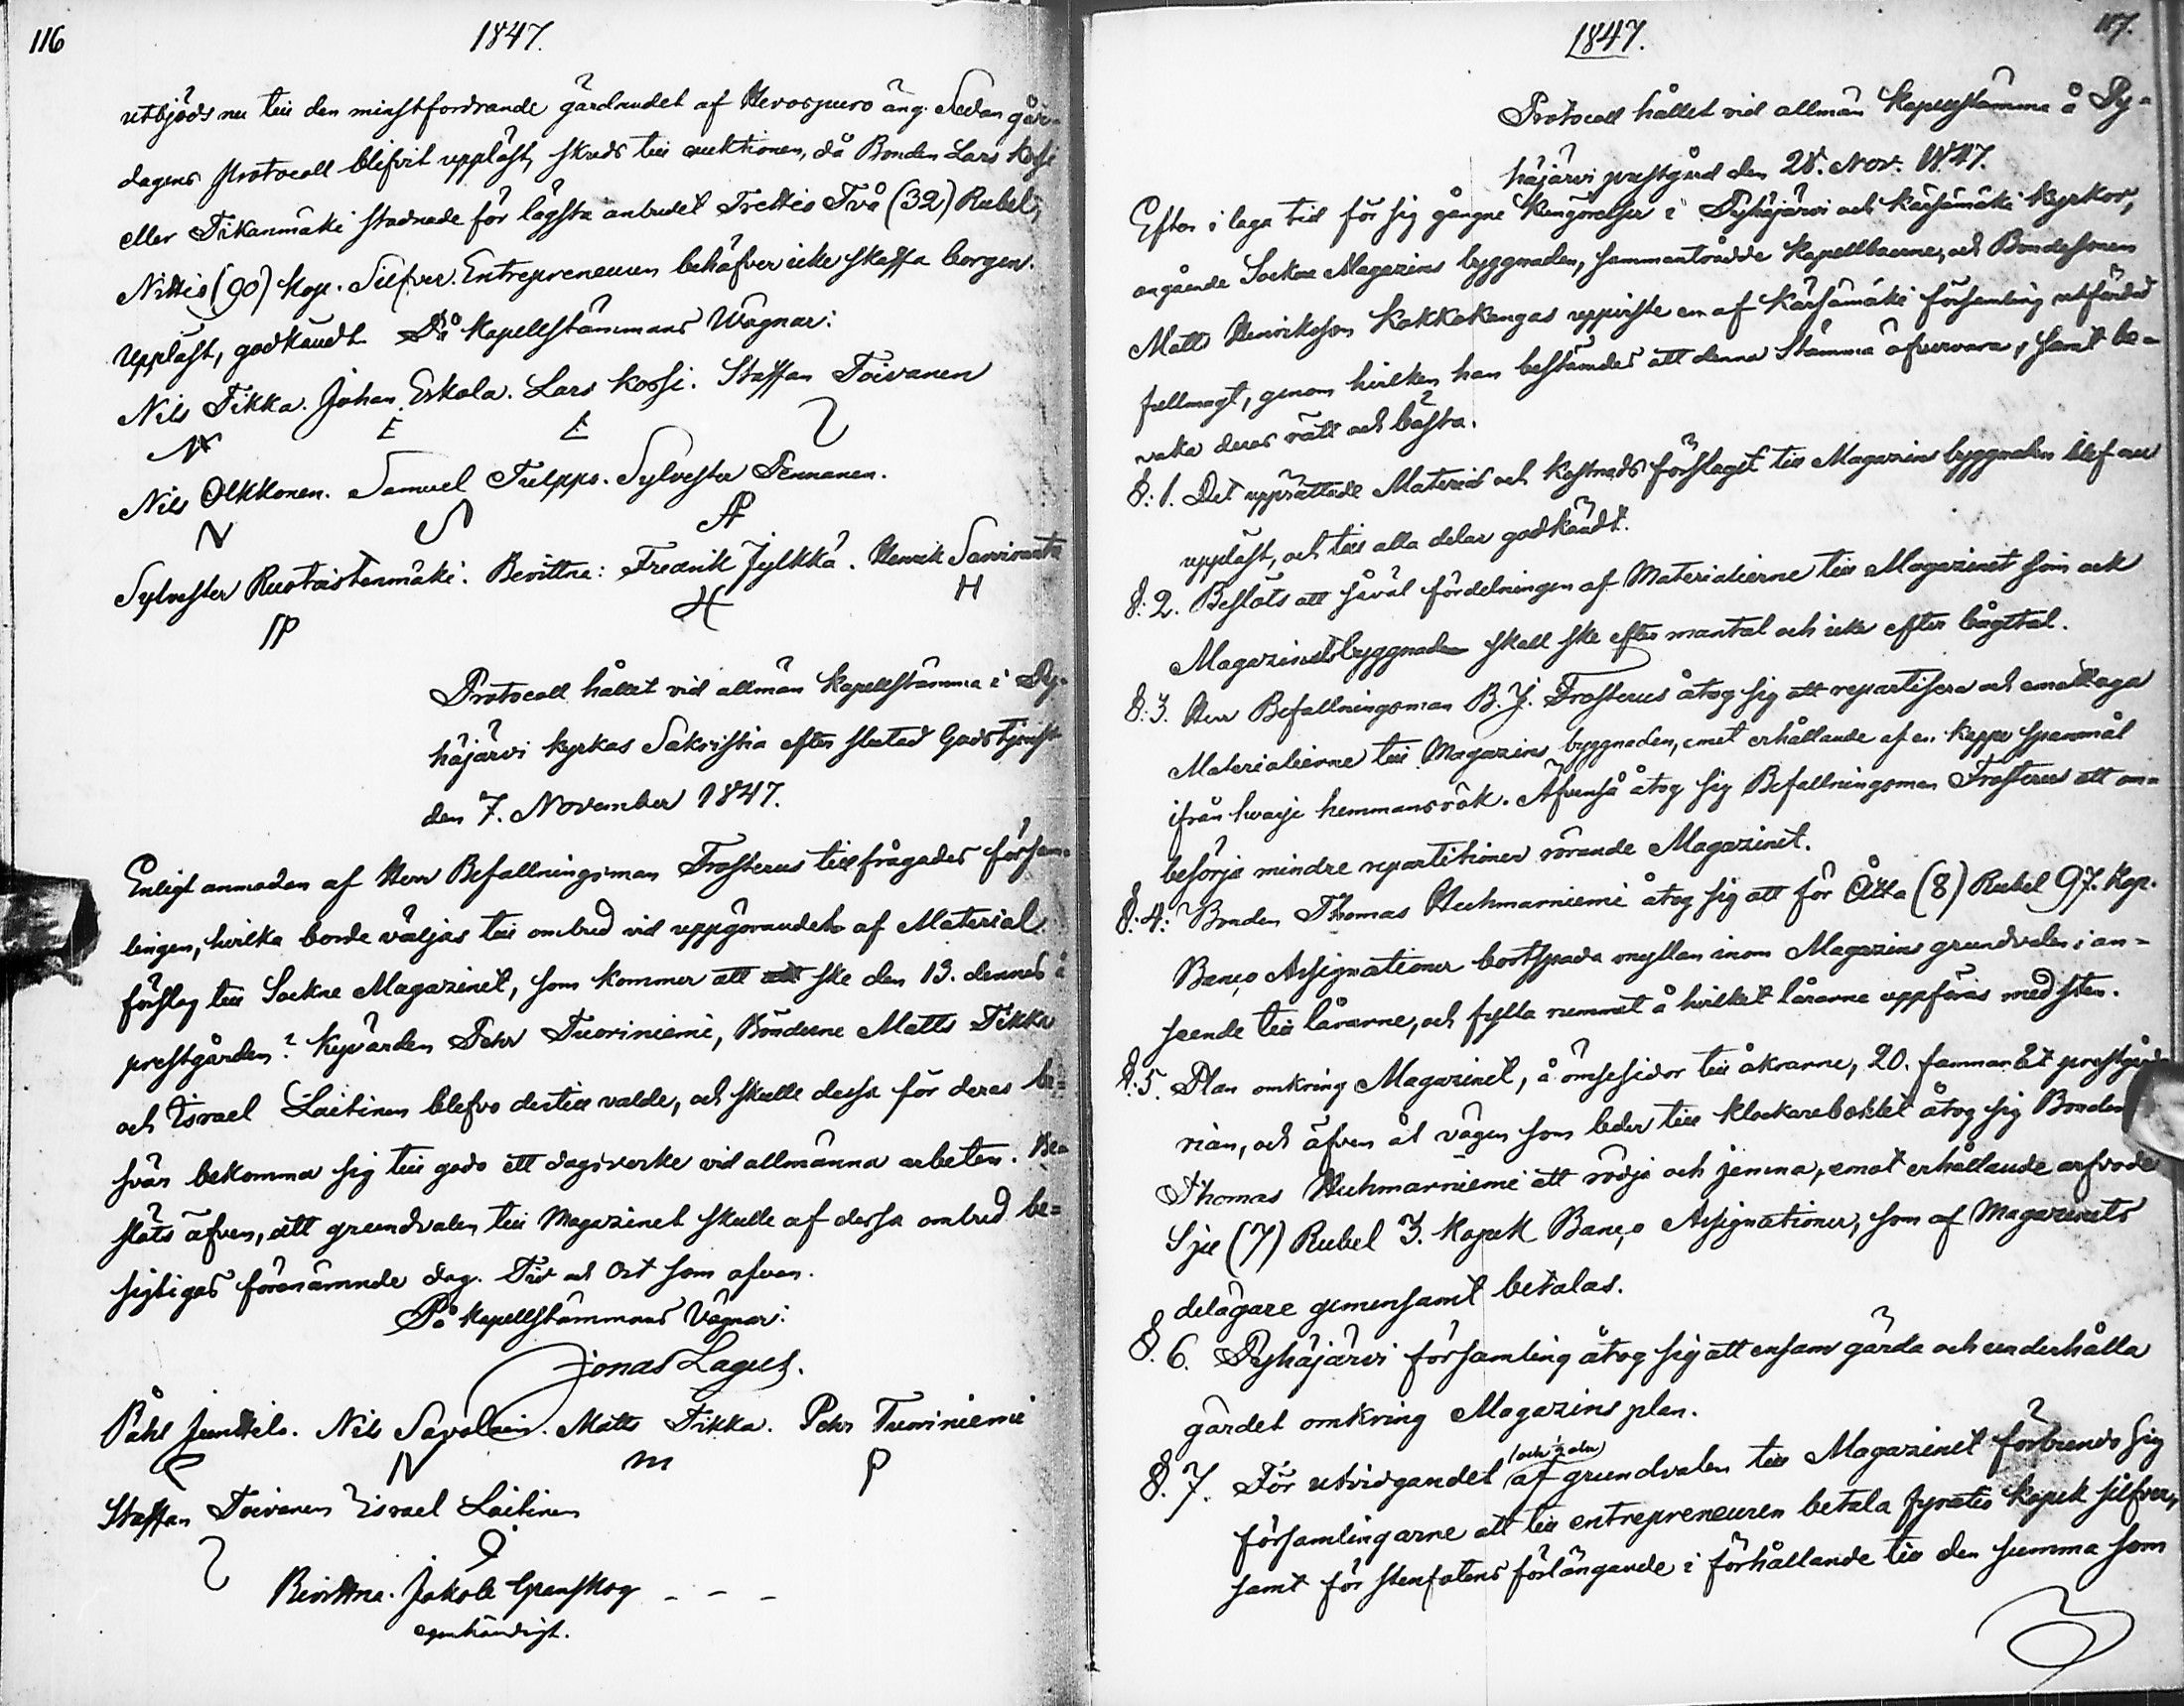 116
1847.
utbjöds nu till den minstfordrande gärdandet af Hevospuro äng. Sedan går-
dagens Protocoll blifvit uppläst, skreds till auktionen, då Bonden Lars Kossi
eller Tikanmäki stadnade för lägsta anbudet Trettio Två (32) Rubel,
Nittio (90) Kop. Silfver. Entrepreneuren behöfver icke skaffa borgen.
Uppläst, godkändt. På Kapellstämmans Wägnar:
Nils Tikka. Johan Eskola. Lars Kossi. Staffan Toivanen
Nils Olkkonen. Samuel Tulppo. Sylvester Pennanen.
N S
Sylvester Ruotoistenmäki. Bevittna: Fredrik Jylkkä. Henrik
H
Protocoll hållet vid allmän Kapellstämma i Py-
häjärvi kyrkas Sakristia efter slutad Gudstjenst
den 7. November 1847.
Enligt anmodan af Herr Befallningsman Frosterus tillfrågades försam-
lingen, hvilka borde väljas till ombud vid uppgörandet af Material
förslag till Sockne Magazinet, som kommer att ske den 13. dennes å
prestgården? Kyrkvärden Pehr Tuoriniemi, Bönderne Matts Tikka
och Israel Laitinen blefvo dertill valde, och skulle dessa för deras be-
svär bekomma sig till godo ett dagsverke vid allmänna arbeten. Be-
slöts äfven, att grundvalen till Magazinet skulle af dessa ombud be-
sigtigas förenämnde dag. Tid och Ort som ofvan.
På Kapellstämmans Vägnar:
Jonas Lagus.
Påhl Junttila. Nils Savolain. Matts Tikka. Pehr Tuoriniemi
P N m P
Staffan Toivanen Israel Laitinen
Bevittna. Jakob Granskog - - -
egenhändigt.
117.
1847.
Protocoll hållet vid allmän Kapellstämma å Py-
häjärvi prestgård den 28. Nov. 1847.
Efter i laga tid för sig gångne Kungörelser i Pyhäjärvi och Kärsämäki Kyrkor,
angående Sockne Magazins byggnaden, sammanträdde Kapellboerne, och Bondesonen
Matts Henriksson Kokkokangas uppviste en af Kärsämäki församling utfärdad
fullmagt, genom hvilken han bestämdes att denna Stämma öfvervara, samt be-
vaka deras rätt och bästa.
§: 1. Det upprättade Material och Kostnads förslaget till Magazins byggnaden blef nu
uppläst, och till alla delar godkändt.
§: 2. Beslöts att såväl fördelningen af Materialierne till Magazinet som ock
Magazinsbyggnaden skall ske efter mantal och icke efter bågtal.
§: 3. Herr Befallningsman B. J. Frosterus åtog sig att repartisera och emottaga
Materialierne till Magazins byggnaden, emot erhållande af en kappe spannmål
ifrån hvarje hemmansrök. Äfvenså åtog sig Befallningsman Frosterus att om-
besörja mindre repartitioner rörande Magazinet.
§: 4. Bonden Thomas Huhmarniemi åtog sig att för Åtta (8) Rubel 97. Kop.
Banco Assignationer bortspada myllan inom Magazins grundvalen i an-
seende till lårarne, och fylla rummet å hvilket lårarne uppföras med sten.
§: 5. Plan omkring Magazinet, å ömsesidor till åkrarne, 20. famnar åt prestgårds
rian, och äfven åt vägen som leder till klockarebohlet åtog sig Bonden
Thomas Huhmarniemi att rödja och jemna, emot erhållande arfvode
Sju (7) Rubel 3. Kopek Banco Assignationer, som af Magazinets
delägare gemensamt betalas.
§. 6. Pyhäjärvi församling åtog sig att ensam gärda och underhålla
gärdet omkring Magazins plan.
§. 7. För utvidgandet af grundvalen till Magazinet förbundo sig
församlingarne att till entrepreneuren betala fyratio kopek silfver,
samt för stenfotens förlängande i förhållande till den summa som